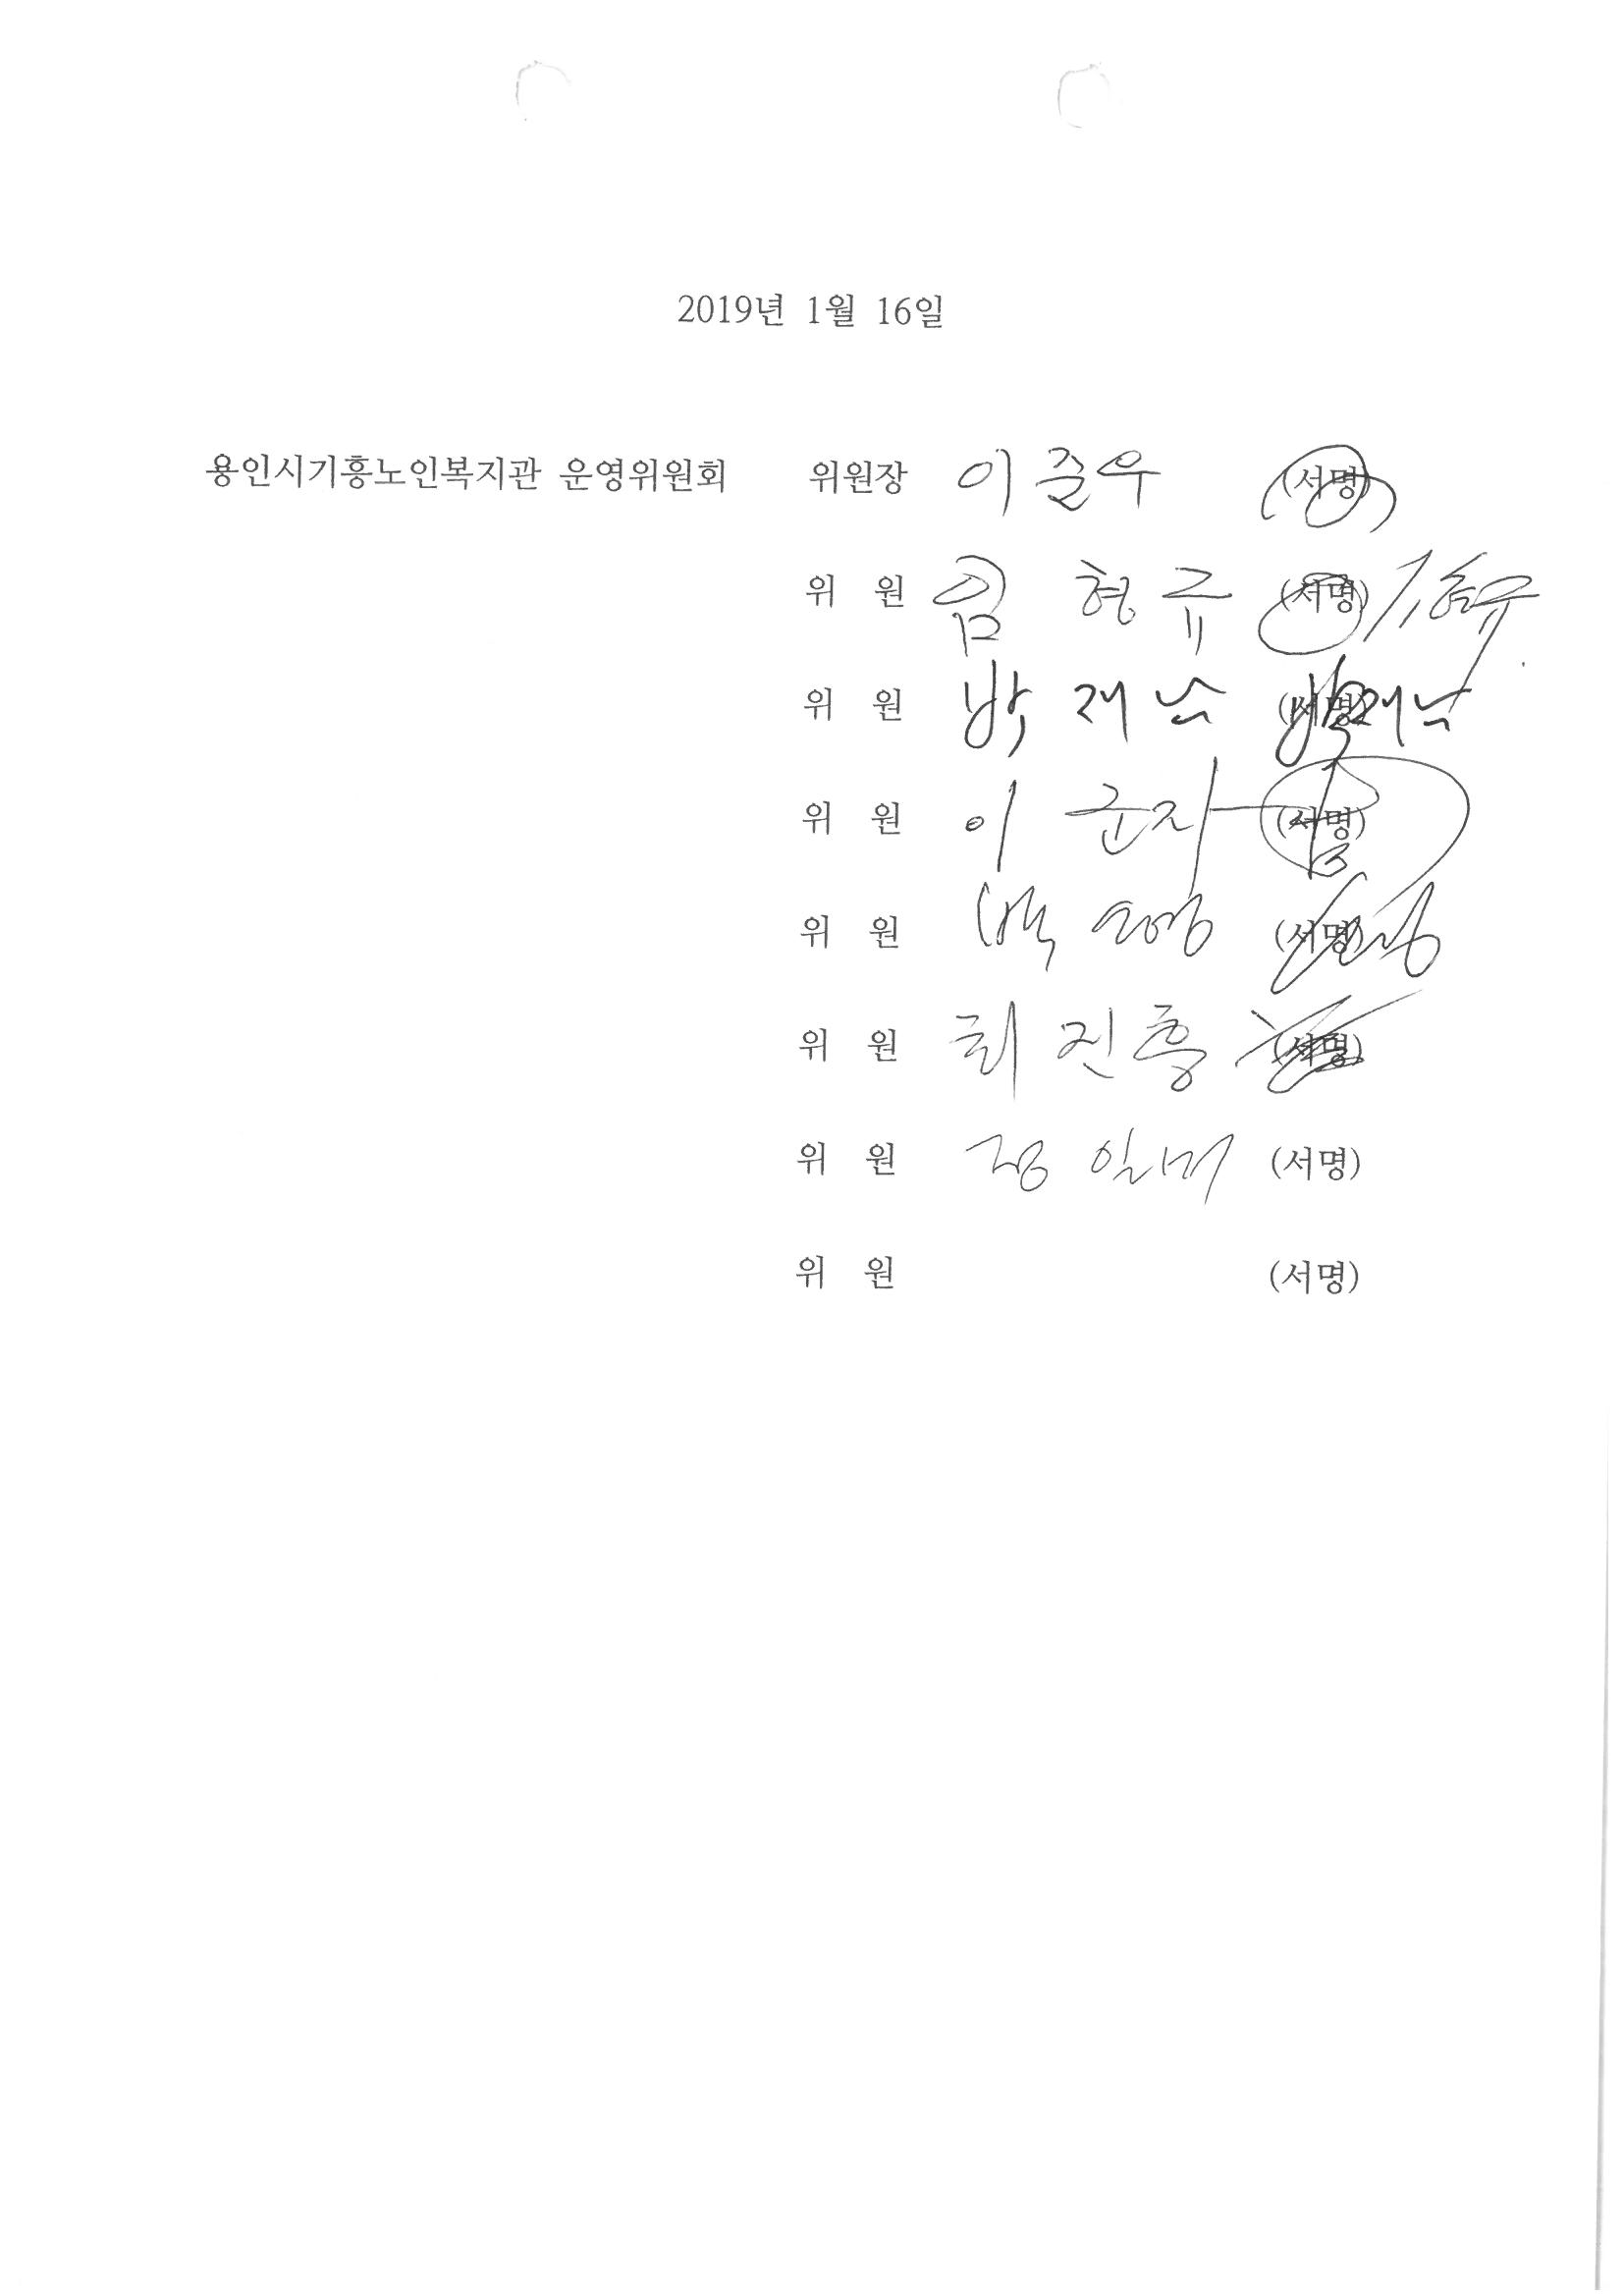 2019년 1월 16일
용인시기흥노인복지관 운영위원회 위원장 이준우 (서명)
위 원 김형규 (서명)
위 원 박재 (서명) 박재
위 원 이군자 (서명)
위 원 백 (서명)
위 원 최진흥 (서명)
위 원 정일미 (서명)
위 원 (서명)